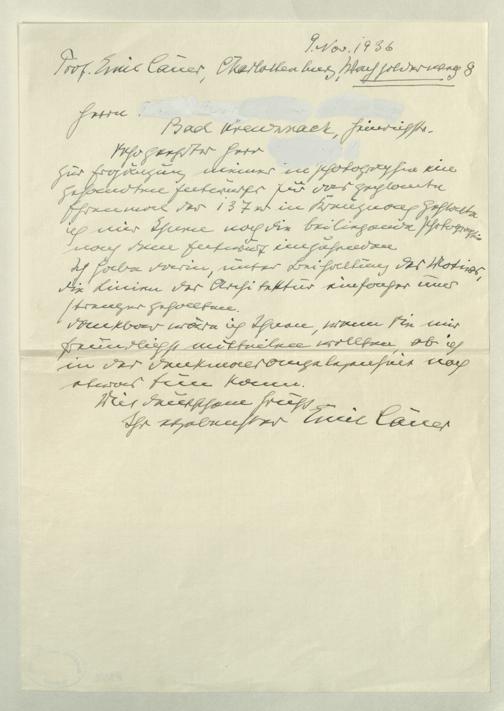 9. Nov. 1936
Prof. Emil Cauer, Charlottenburg, 8
Herrn
Bad Kreuznach, Heinrichstr.
Sehr geehrter Herr
Zur Ergänzung meiner in Photographie ein
gesandten Entwürfe für das geplante
Ehrenmal der 137er in Kreuznach gestatte
ich mir Ihnen noch die beiliegende Photographie
nach dem Entwurf einzusenden
Ich habe darin, unter Beihaltung des Motives,
die Linien der Architektur einfacher und
strenger gehalten.
Dankbar wäre ich Ihnen, wenn Sie mir
freundlichst mitteilen wollten ob ich
in der Denkmalsangelegenheit noch
etwas tun kann.
Mit deutschem Gruß
Ihr ergebenster Emil Cauer